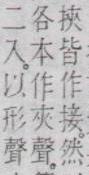 挾皆作接。然
各本作夾聲。
二入。以形聲